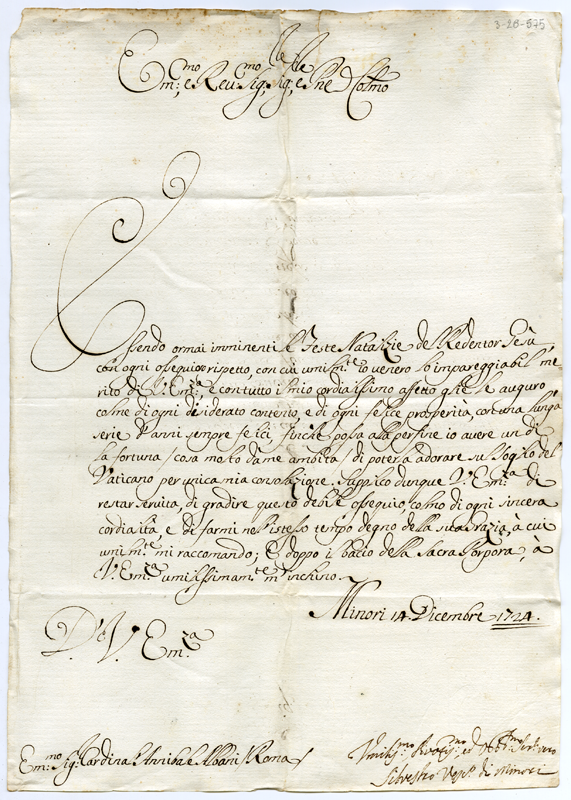 3-20-575
Em:mo, e Reu:mo Sig:, Sig:, e Pne Colmo
Essendo ormai imminenti le Feste Natalizie del Redentor Gesù,
con ogni ossequio e rispetto, con cui umilm:te io venero lo impareggiabil me
rito di V. Em:za, e con tutto il mio cordialissimo affetto gliele auguro
colme di ogni desiderato contento, e di ogni felice prosperità, con una lunga
serie d'anni sempre felici, finche possa alla perfine io avere un dì
la fortuna / cosa molto da me ambita / di poterla adorare sul soglio del
Vaticano per unica mia consolazione. Supplico dunque V. Em:za di
restar servita, di gradire questo debile ossequio, colmo di ogni sincera
cordialità, e di farmi nel istesso tempo degno della sua Grazia, a cui
umilm:te mi raccomando; E doppo il bacio della Sacra Porpora, à
V. Em:za umilissimam:te m'inchino.
Minori 14. Dicembre 1724.
D. V. Em:za
Em:mo Sig: Cardinale Annibale Albani / Roma /
Umiliss:mo ed Obb:mo
Silvestro Vesc:o di Minori